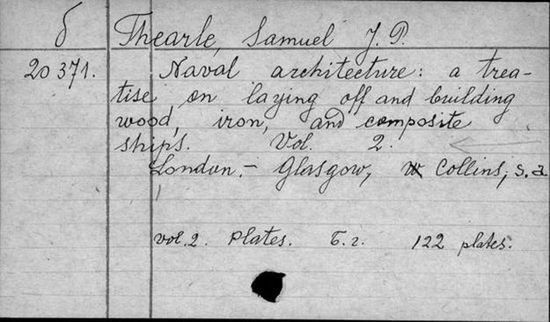 б Thearle, Samuel J. P.
20371. Naval architecture: a trea-
tise on laying off and building
wood, iron, and composite
ships. Vol. 2.
London.- Glasgow, W Collins, s.a
vol.2. Plates. б.г. 122 plates.